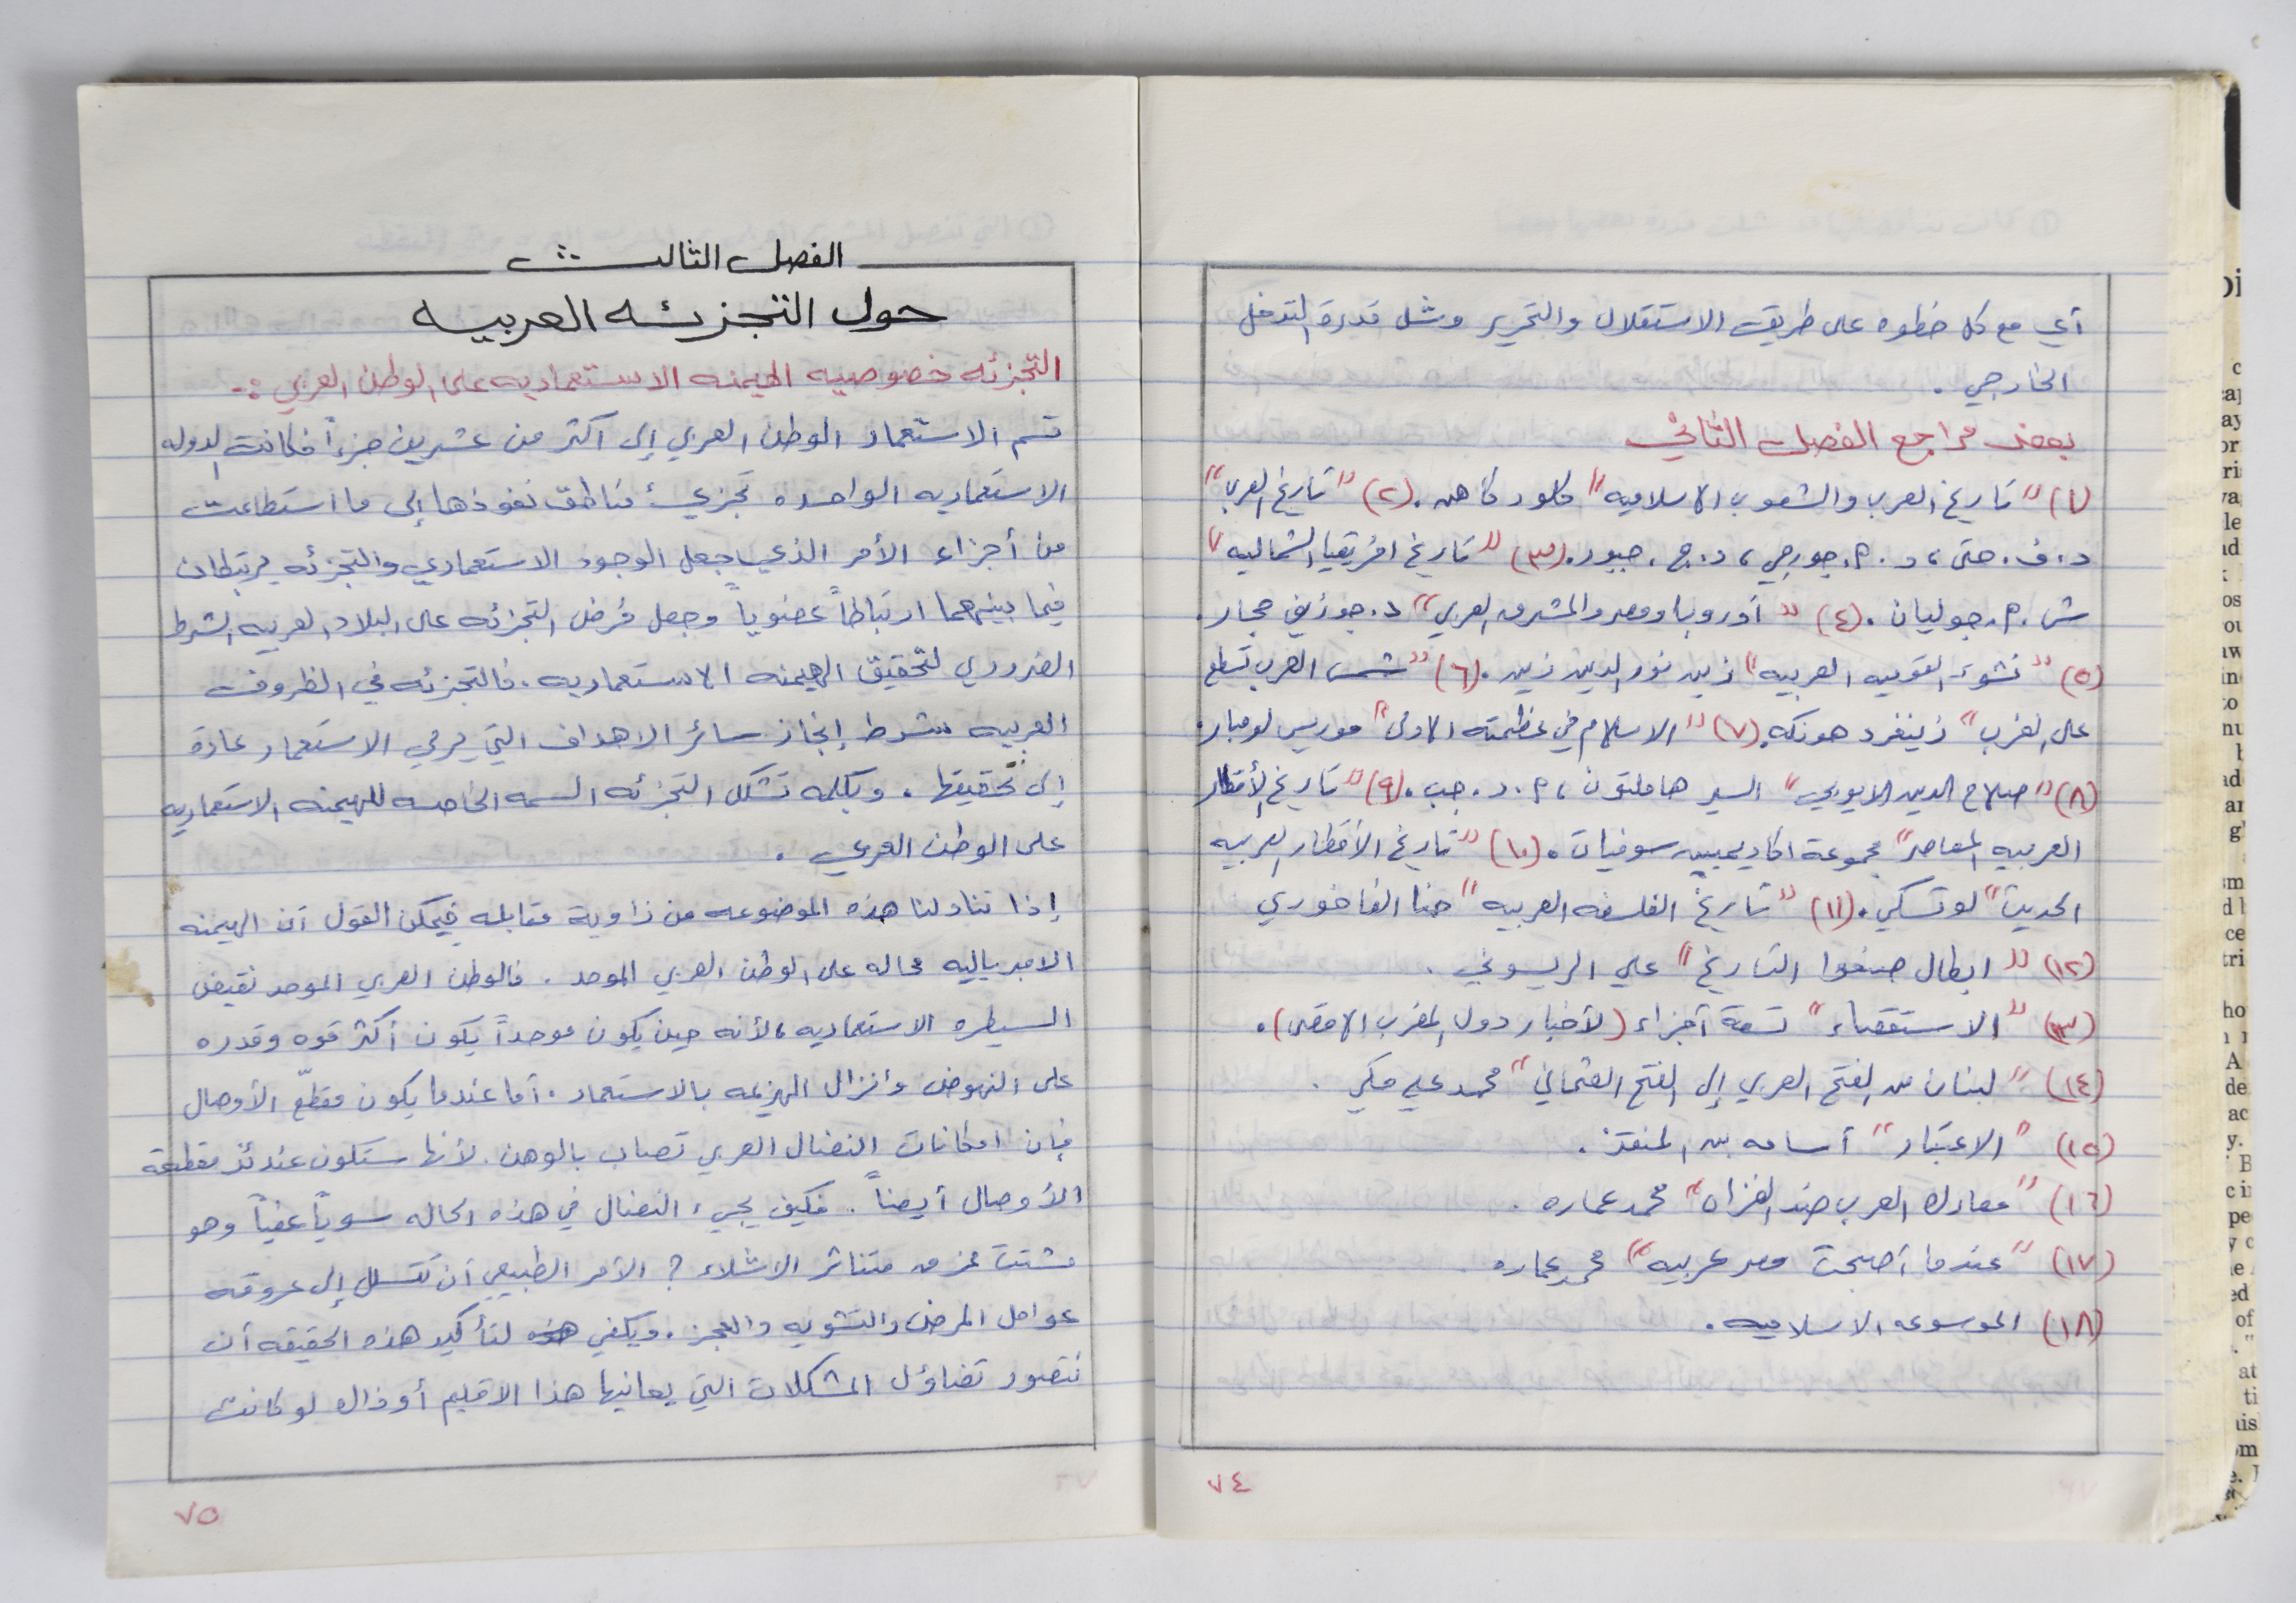 أي مع كل خطوه على طريق الاستقلال والتحرير وشل قدرة التدخل
الخارجي .
بعض مراجع الفصل الثاني
(١) "تاريخ العرب والشعوب الاسلاميه" كلود كاهن . (٢) "تاريخ العرب"
د . ف . حتى ، د . م . جورجي ، د . ج . جبور . (٣) "تاريخ افريقيا الشماليه"
ش . م . جوليان . (٤) "أوروبا ومصر والمشرق العربي" د . جوزيف حجار .
(٥) "نشوء القوميه العربيه" زين نور الدين زين . (٦) "شمس العرب تسطع
على الغرب" زيغرد هونكه . (٧) "الاسلام في عظمته الاولى" موريس لومبار .
(٨) "صلاح الدين الايوبي" السير هاملتون ، م . د . جب . (٩) "تاريخ الأقطار
العربيه المعاصر" مجموعة اكاديميين سوفيات . (١٠) "تاريخ الاقطار العربيه
الحديث" لوتسكي . (١١) "تاريخ الفلسفه العربيه" حنا الفاخوري
(١٢) "ابطال صنعوا التاريخ" علي الريسوني .
(١٣) "الاستقصاء" تسعة أجزاء (لأخبار دول المغرب الاقصى) .
(١٤) "لبنان من الفتح العربي إلى الفتح العثماني" محمد علي مكي .
(١٥) "الاعتبار" أسامه بن المنقذ .
(١٦) "معارك العرب ضد الغزاه" محمد عماره .
(١٧) "عندما أصبحت مصر عربيه" محمد عماره .
(١٨) الموسوعه الاسلاميه .
٧٤
الفصل الثالث
حول التجزئه العربيه
التجزئه خصوصيه الهيمنه الاستعماريه على الوطن العربي :-
قسم الاستعمار الوطن العربي إلى اكثر من عشرين جزءاً فكانت الدوله
الاستعماريه الواحده تجزيء مناطق نفوذها إلى ما استطاعت
من أجزاء الأمر الذي جعل الوجود الاستعماري والتجزئه يرتبطان
فيما بينهما ارتباطاً عضوياً وجعل فرض التجزئه على البلاد العربيه الشرط
الضروري لتحقيق الهيمنه الاستعماريه . فالتجزئه في الظروف
العربيه شرط إنجاز سائر الاهداف التي يرمي الاستعمار عادة
إلى تحقيقها . وبكلمه تشكل التجزئه السمه الخاصه للهيمنه الاستعماريه
على الوطن العربي .
إذا تناولنا هذه الموضوعه من زاوية مقابله فيمكن القول أن الهيمنه
الامبرياليه محاله على الوطن العربي الموحد . فالوطن العربي الموحد نقيض
السيطره الاستعماريه ، لأنه حين يكون موحداً يكون أكثر قوه وقدره
على النهوض وانزال الهزيمه بالاستعمار . أما عندما يكون مقطّع الأوصال
فإن امكانات النضال العربي تصاب بالوهن . لأنها ستكون عندئذ مقطعة
الأوصال أيضاً . فكيف يجيء النضال في هذه الحاله سوياً عفياً وهو
مشتت ممزق متناثر الاشلاء ؟ الأمر الطبيعي أن تتسلل إلى عروقه
عوامل المرض والتشويه والعجز . ويكفي لتأكيد هذه الحقيقه أن
نتصور تضاؤل المشكلات التي يعانيها هذا الاقليم أو ذاك لو كانت
٧٥